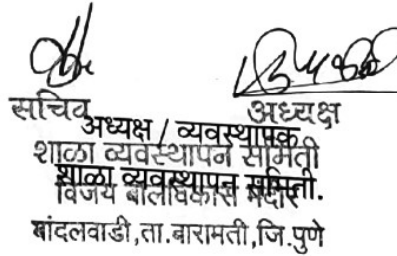 सचिव अध्यक्ष
अध्यक्ष / व्यवस्थापक
शाळा व्यवस्थापन समिती
शाळा व्यवस्थापन समिती.
विजय बालविकास मंदीर
बांदलवाडी,ता.बारामती,जि.पुणे